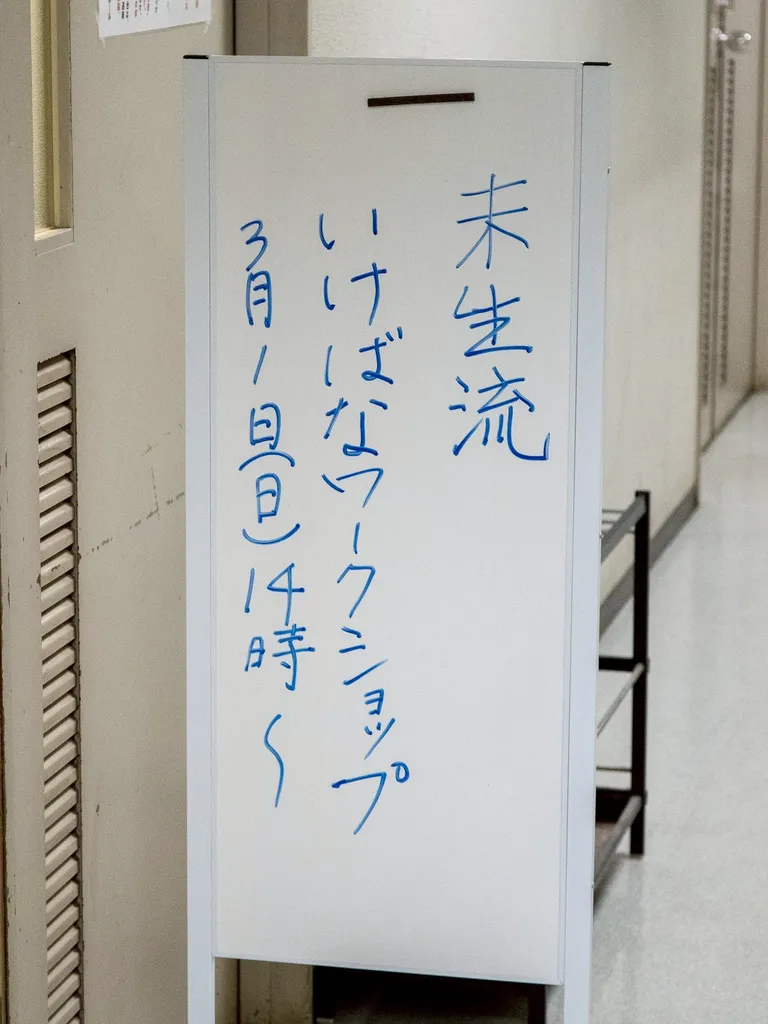 未生流
いけばなワークショップ
3月1日(日)14時〜